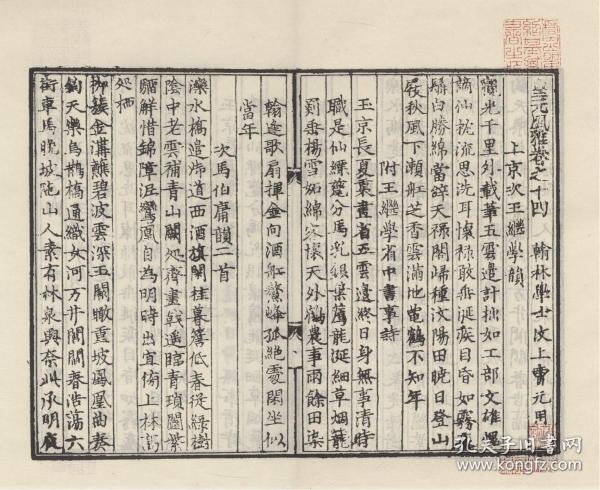 皇元風雅卷之十四
翰林學士汶上曹元用
上京次王繼學韻
光千里外載筆五雲邊計拙如工部文雄
謫仙枕流思洗耳懷祿敢垂涎疾目昏如霧
白勝綿當辭天祿閣歸種汶陽田曉日登山
屐秋風下瀨舡芝香雲滿地鶴不知年
附王繼學省中書事詩
玉京長夏裏畫省五雲邊終日身無事清時
職是仙縹分馬乳銀葉龍涎細草烟籠
罽垂楊雪妬綿客懷天外鶴農事雨餘田染
翰逢歌扇揮金向酒舡鰲峰孤絕處閑坐似
當年
次馬伯庸韻二首
灤水橋邊御道西酒旗閑挂暮簷低春從綠樹
陰中老雲補青山闕處齊畫戟遙臨青瑣闥紫
騮解惜錦障泥鸞鳳自為明時出宜倚上林
處栖
柳簇金溝蘸碧波雲深玉闕瞰重坡鳳凰曲奏
鈞天樂烏鵲橋通織女河萬井閭閻春浩蕩六
街車馬晚坡陁山人素有林泉興奈此承明夜
孔夫子旧书网
www.kongfz.com